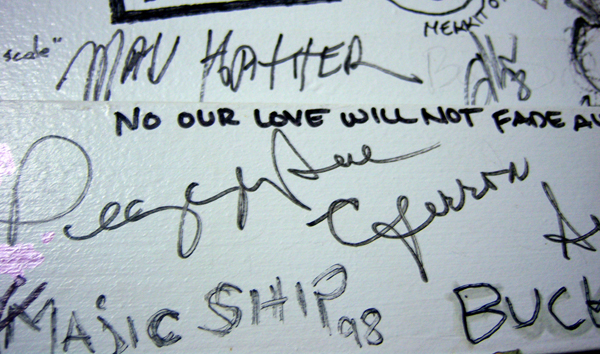 scale"
MAN HATTER
NO OUR LOVE WILL NOT FADE
Peggy Sue
MAJIC SHIP 98
BUCK